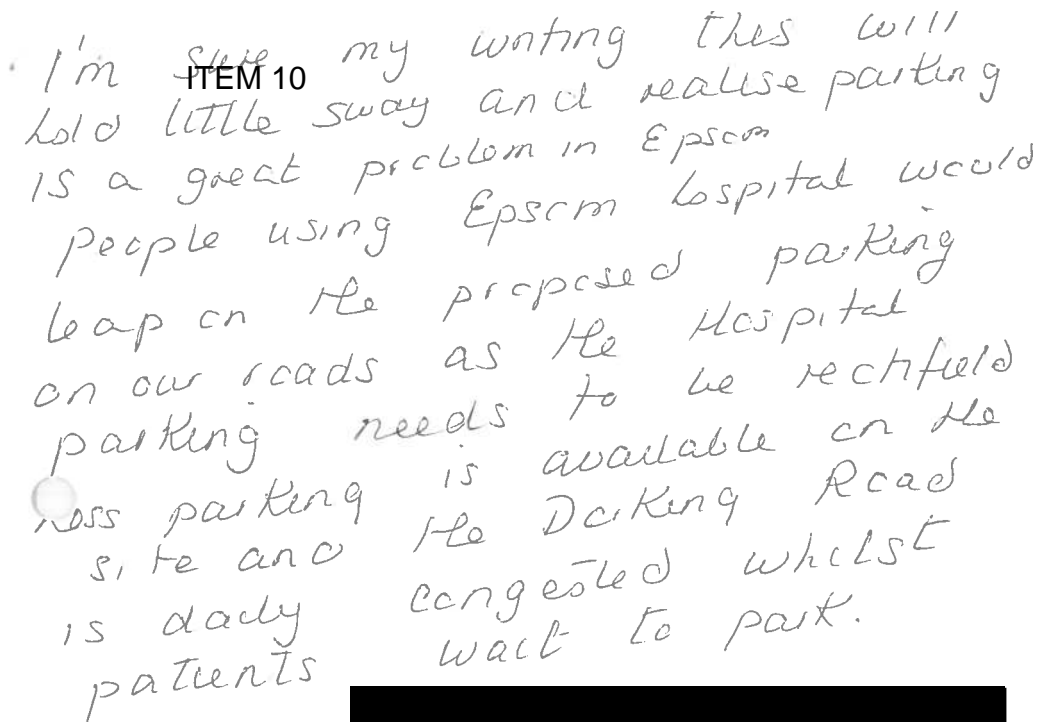 I'm sure my writing this will
ITEM 10
hold little sway and realise parking
is a great problem in Epsom
people using Epsom hospital would
leap on the proposed parking
on our roads as the Hospital
parking needs to be rectifield
less parking is available on the
site and the Dorking Road
is daily congested whilst
patients wait to park.